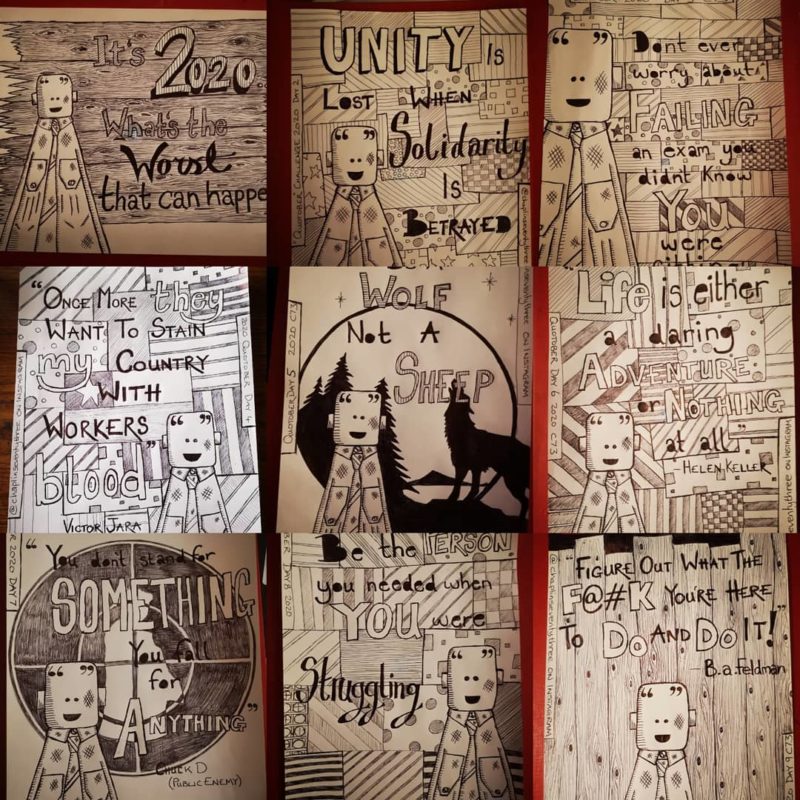 It's 2020.
What's the
Worst
that can happe
UNITY Is
Lost When
Solidarity
Is
Betrayed
Quotober Challenge 2020 Day 2
Dont ever
worry about
FAILING
an exam you
didnt Know
You
were
"Once More they
Want To Stain
my Country
With
Workers
blood"
Victor Jara
@chaplinseventythree on Instagram
2020 Quotober Day 4
Wolf
Not A
Sheep
Quotober Day 5 2020 C73
inseventythree on Instagram
Life is either
a daring
Adventure
or Nothing
at all"
- Helen Keller
Quotober Day 6 2020 C73
seventythree on Instagram
"You don't stand for
SOMETHING
You fall
for
Anything"
Chuck D
(Public Enemy)
ER 2020 Day 7
Be the PERSON
you needed when
YOU were
Struggling
BER Day 8 2020
"Figure Out What The
F@#K You're Here
To Do And Do It!"
- B.a.feldman
@chaplinseventythree on Instagram
Day 9 C73